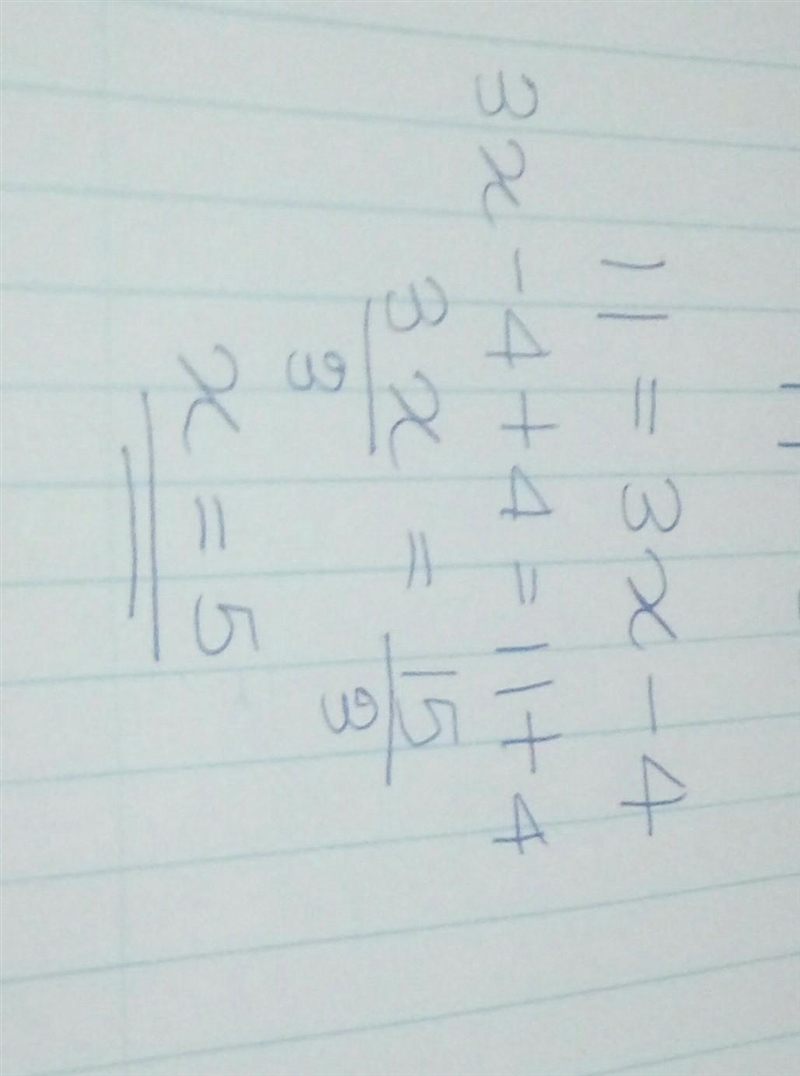 11 = 3x - 4
3x - 4 + 4 = 11 + 4
3x/3 = 15/3
x = 5